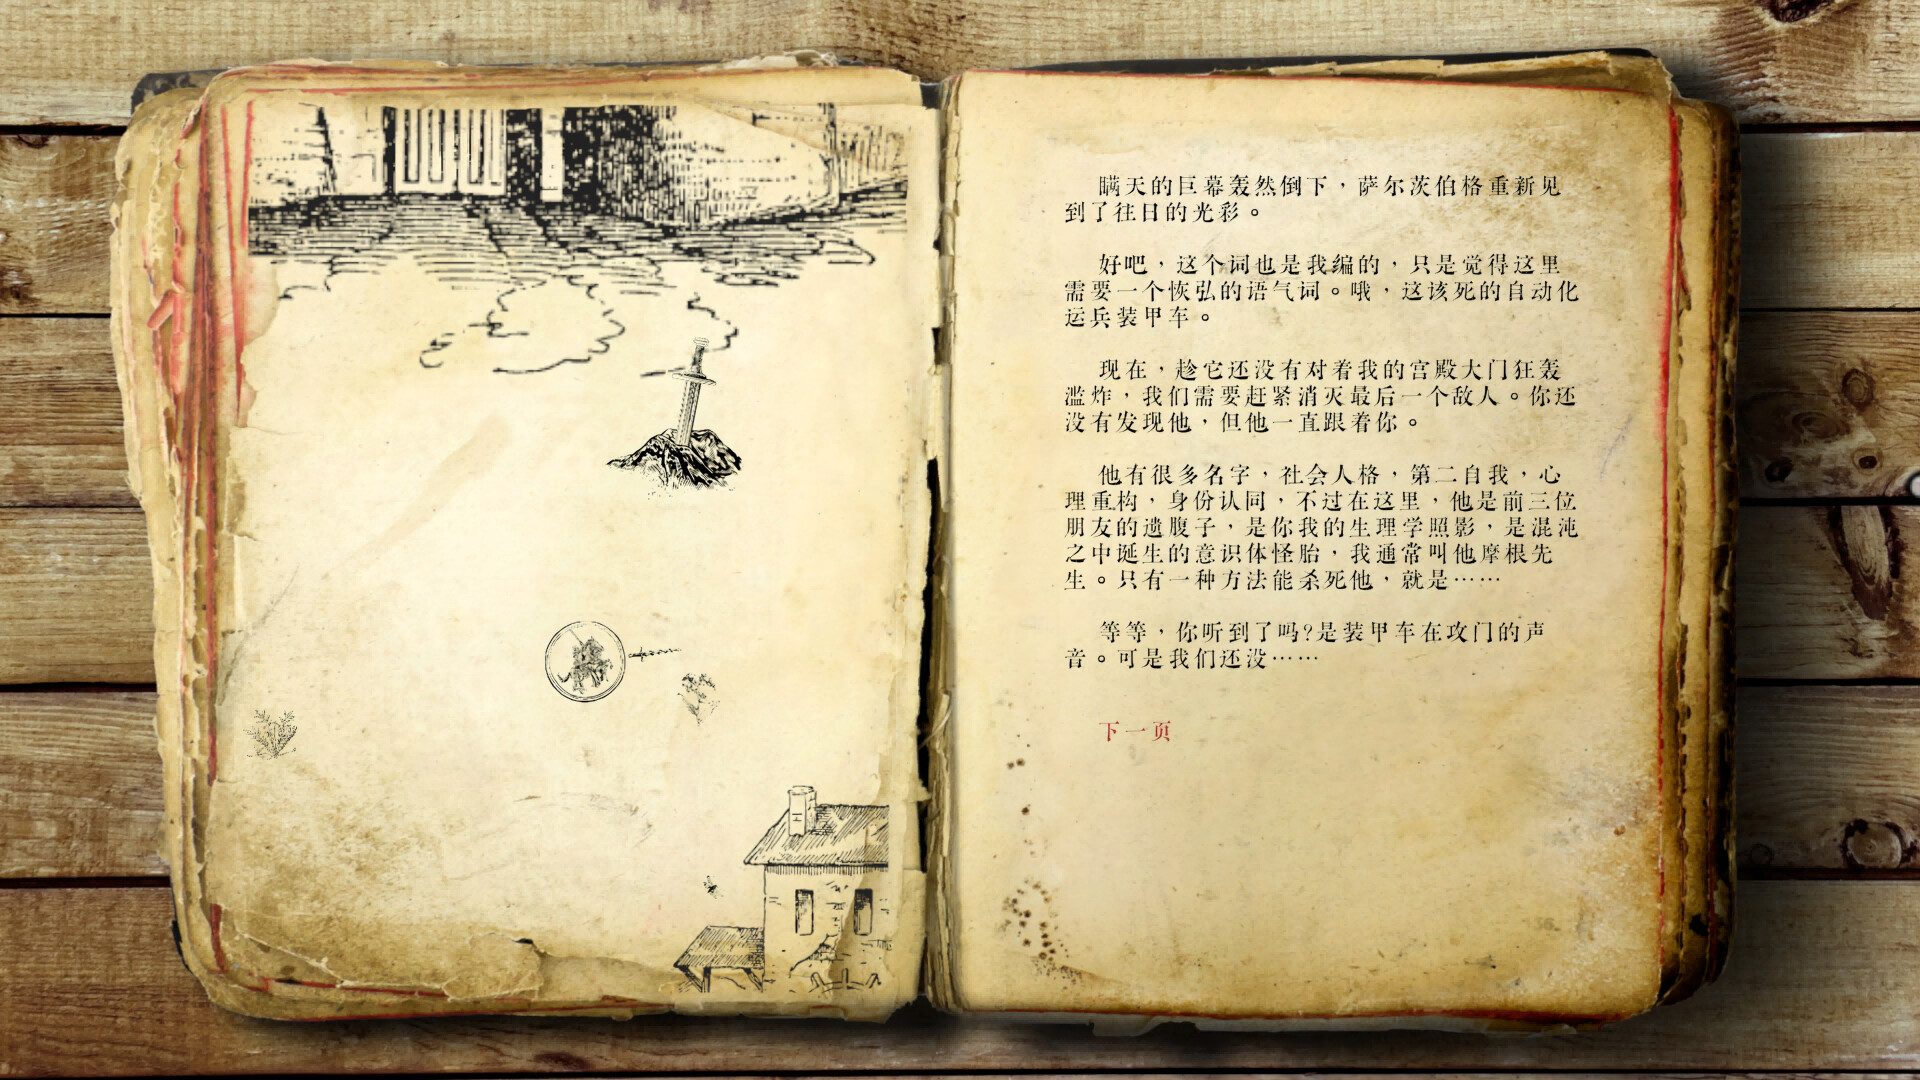 瞒天的巨幕轰然倒下，萨尔茨伯格重新见
到了往日的光彩。
好吧，这个词也是我编的，只是觉得这里
需要一个恢弘的语气词。哦，这该死的自动化
运兵装甲车。
现在，趁它还没有对着我的宫殿大门狂轰
滥炸，我们需要赶紧消灭最后一个敌人。你还
没有发现他，但他一直跟着你。
他有很多名字，社会人格，第二自我，心
理重构，身份认同，不过在这里，他是前三位
朋友的遗腹子，是你我的生理学照影，是混沌
之中诞生的意识体怪胎，我通常叫他摩根先
生。只有一种方法能杀死他，就是……
等等，你听到了吗？是装甲车在攻门的声
音。可是我们还没……
下一页